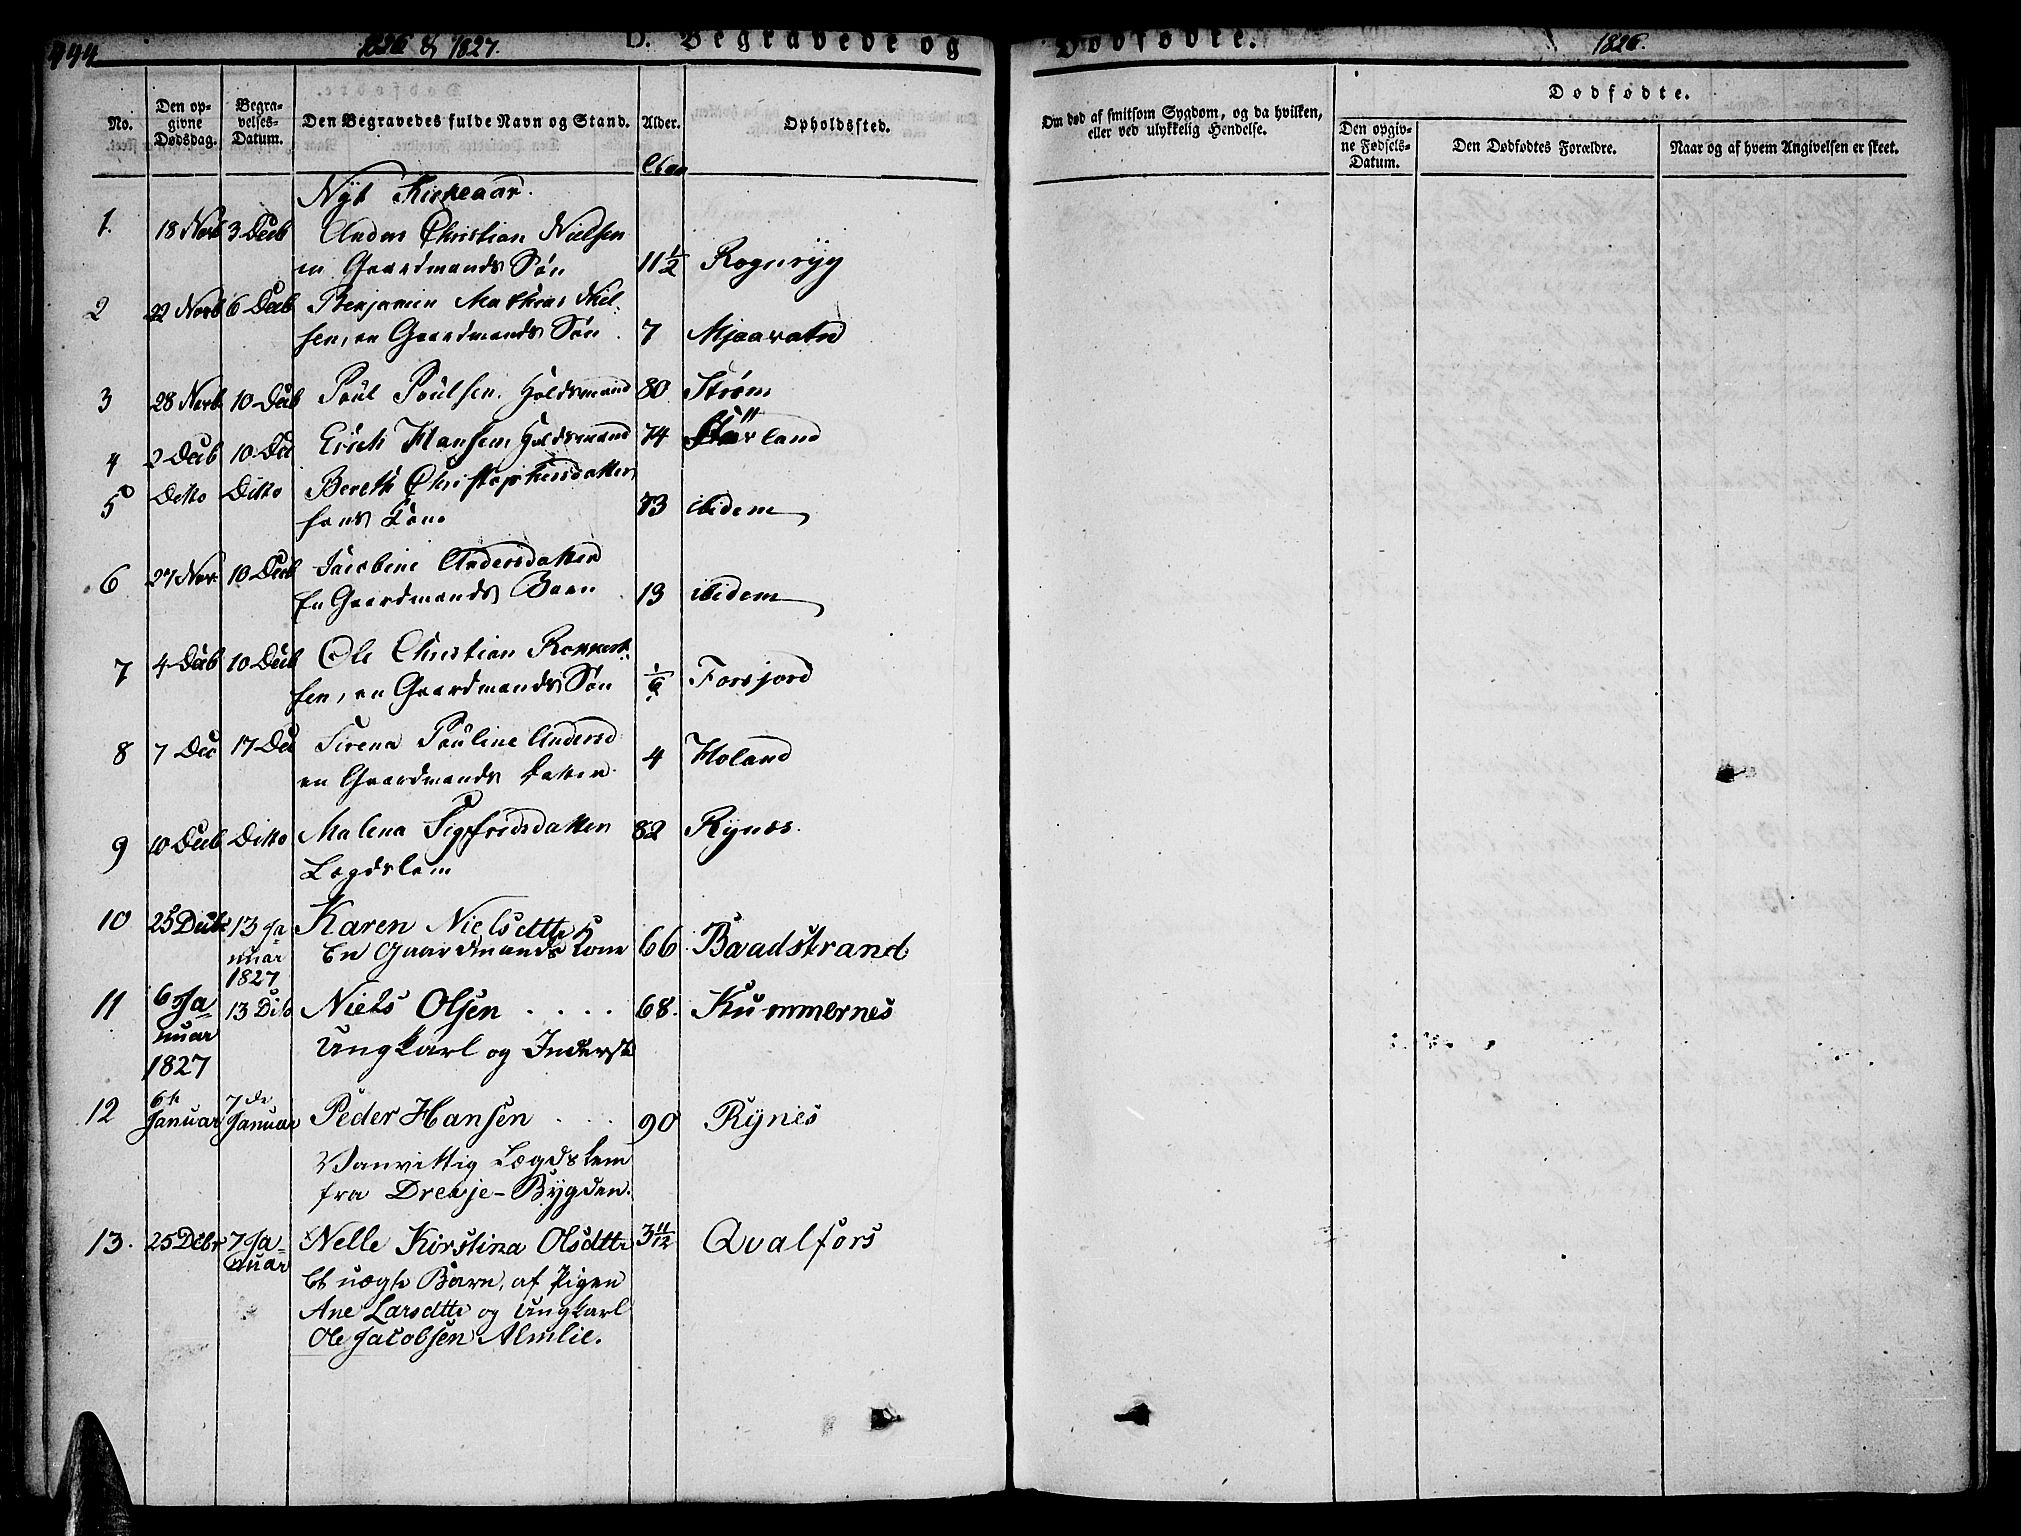 444
1826 & 1827.
D. Begravede og
Dødfødte.
1826.
No.
Den opgivne Dødsdag.
Begravelses-Datum.
Den Begravedes fulde Navn og Stand.
Alder.
Opholdssted.
Om død af smitsom Sygdom, og da hvilken, eller ved ulykkelig Hendelse.
Dødfødte.
Den opgivne Fødsels-Datum.
Den Dødfødtes Forældre.
Naar og af hvem Angivelsen er skeet.
Aar
Nyt Kirkeaar.
1. 18 Novb 3 Decb Anders Christian Nielsen
en Gaardmands Søn 11 1/2
2 22 Novb 6 Decb Benjamin Mathias Niel-
sen, en Gaardmands Søn 7 Mjaavatn
3 28 Novb 10 Decb Poul Poulsen, Holdsmand 80 Strøm
4 2 Decb 10 Dec Erich Hansen Holdsmand 74
5 Ditto Ditto Bereth Christophersdatter
hans Kone 73 ibidem
6 27 Nov 10 Decb Jacobine Andersdatter
En Gaardmands Barn 13 ibidem
7 4 Decb 10 Decb Ole Christian
sen, en Gaardmands Søn 1/6 Forsjord
8 7 Dec 17 Dec Sirena Pauline Andersd
en Gaardmands Datter 4 Holand
9 10 Decb Ditto Malena Sigfredsdatter 82 Rynes.
Lægdslem
10 25 Decbr 13 Ja- Karen Nielsdtte
nuar En Gaardmands Kone 66. Baadstrand
1827
11 6 Ja- 13 Dito Niels Olsen . . . . 68. Kummernes
nuar
1827 Ungkarl og Inderst
12 6te Januar 7de Januar Peder Hansen . . . 90 Rynes
Vanvittig Lægdslem
fra Drevje-Bygden.
13. 25 Decbr 7 Ja- Nelle Kirstina Olsdtte 3 11/12 Qvalfors
nuar
Et uægte Barn, af Pigen
Ane Larsdtte og Ungkarl
Ole Jacobsen Almlie.